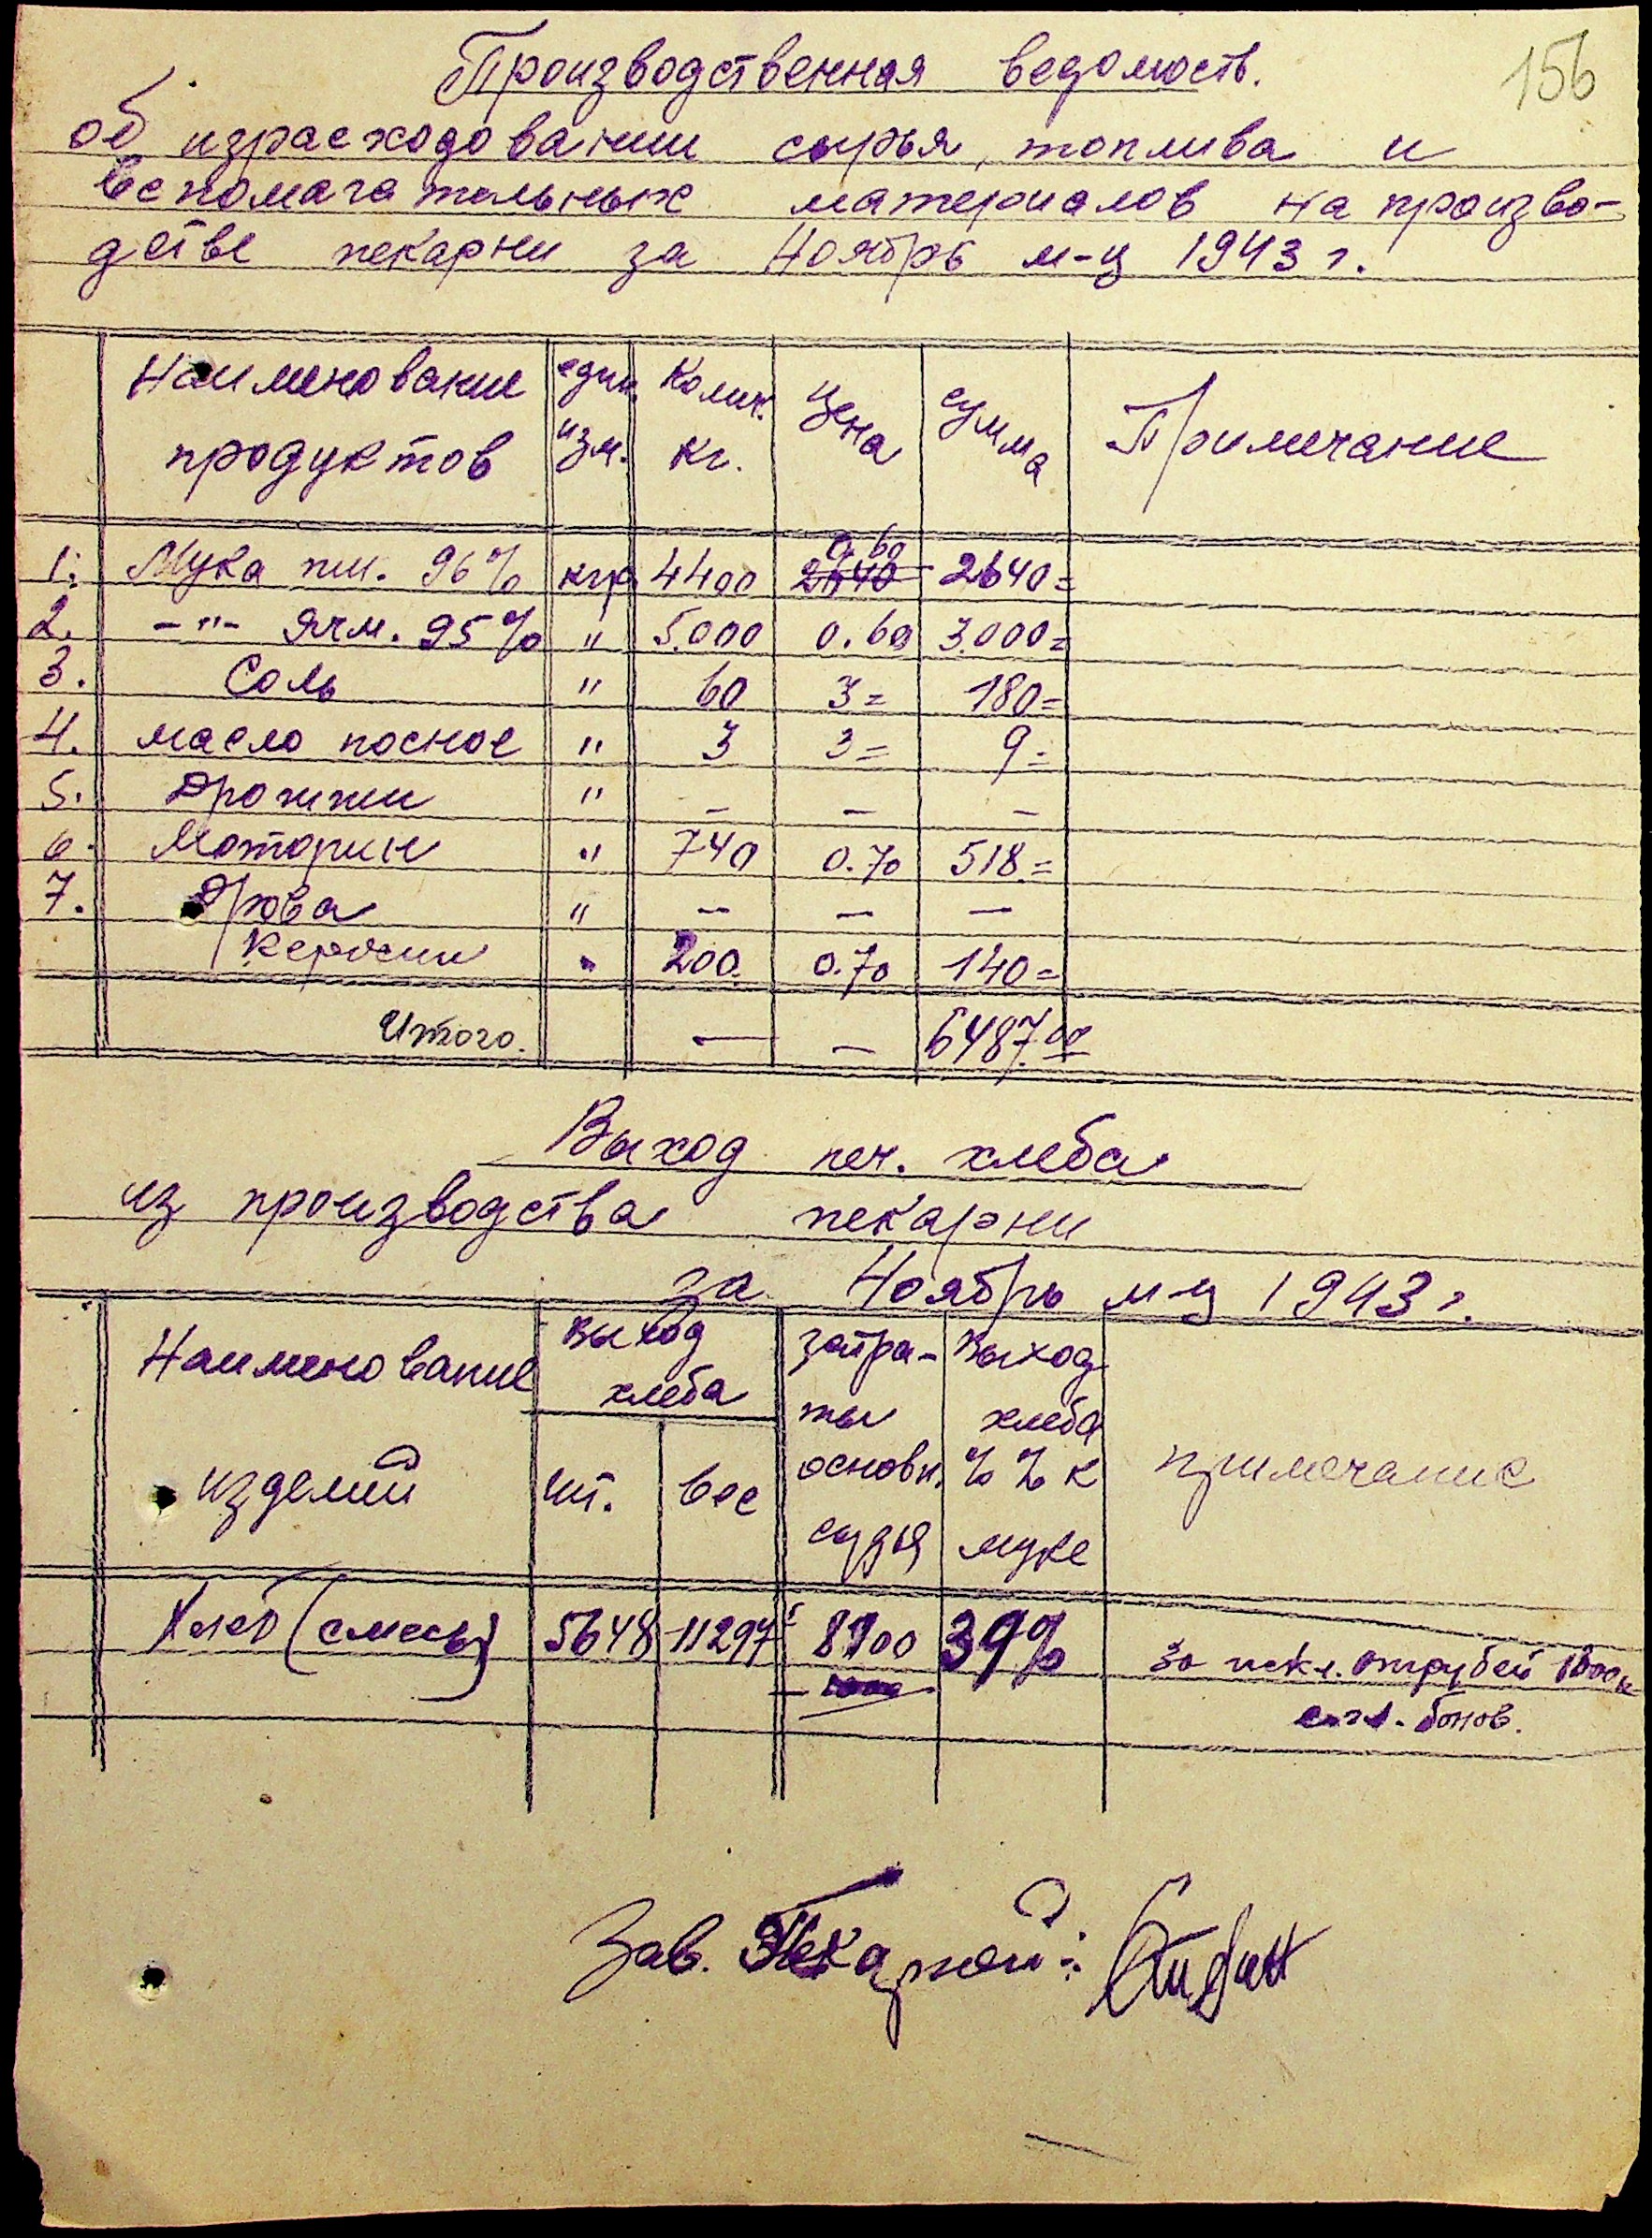 156
Производственная ведомость.
об израсходовании сырья, топлива и
вспомагательных материалов на произво-
дстве пекарни за Ноябрь м-ц 1943 г.
Наименование продуктов един. изм. Колич. кг. Цена сумма Примечание
1. Мука пш. 96% кгр 4400 0.60 2640=
2. -"- ячм. 95% " 5.000 0.60 3.000=
3. Соль " 60 3= 180=
4. масло посное " 3 3= 9=
5. Дрожжи " — — —
6. Моторин " 740 0.70 518.=
7. Дрова " — — —
Керосин " 200. 0.70 140=
Итого. — — 6487.00
Выход печ. хлеба
из производства пекарни
за Ноябрь м-ц 1943 г.
Наименование изделий выход хлеба шт. вес затра-ты основн. сырья выход хлеба % % к муке примечание
Хлеб (смесь) 5648 11297 8900 39% за искл. отрубей
Зав. Пекарной: